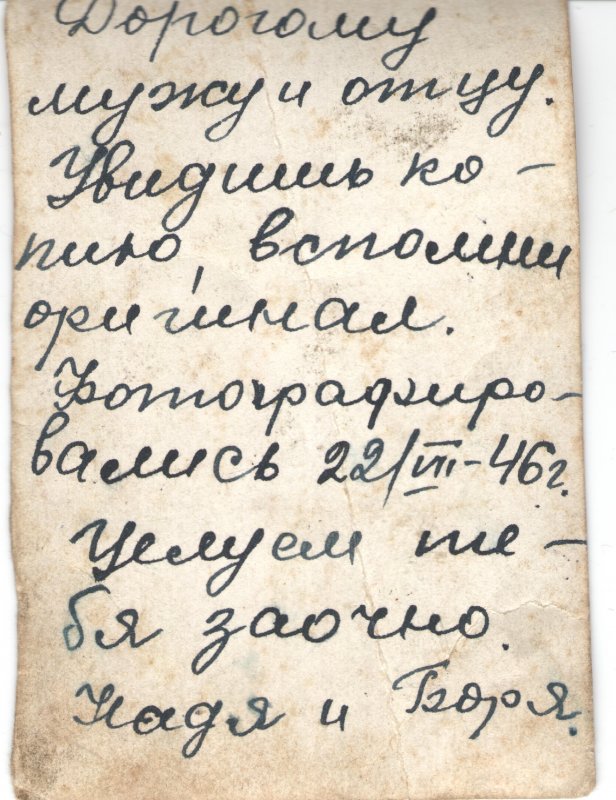 Дорогому
мужу и отцу.
Увидишь ко-
пию, вспомни
оригинал.
Фотографиро-
вались 22/VIII-46г.
Целуем те-
бя заочно.
Надя и Боря.